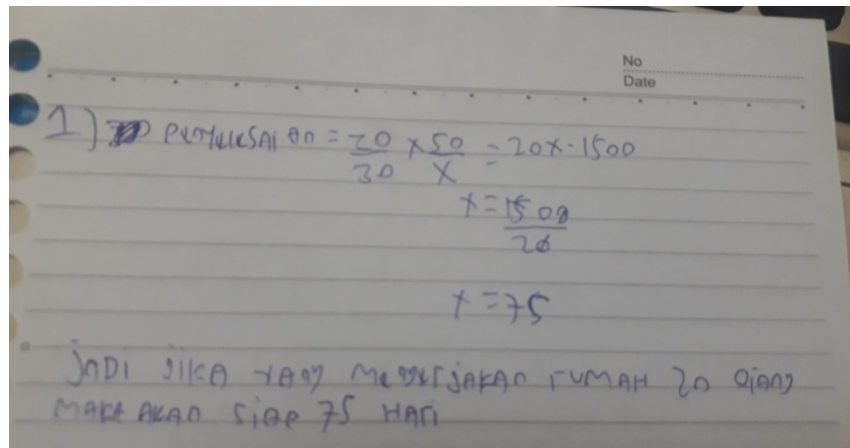 No
Date
1) Penyelesaian = 20/30 x 50/x = 20x . 1500
x = 1500/20
x = 75
Jadi jika yang mengerjakan rumah 20 orang
maka akan siap 75 hari